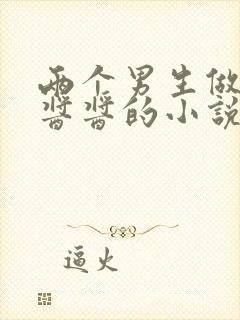 两个男生做
酱酱的小说
逼火